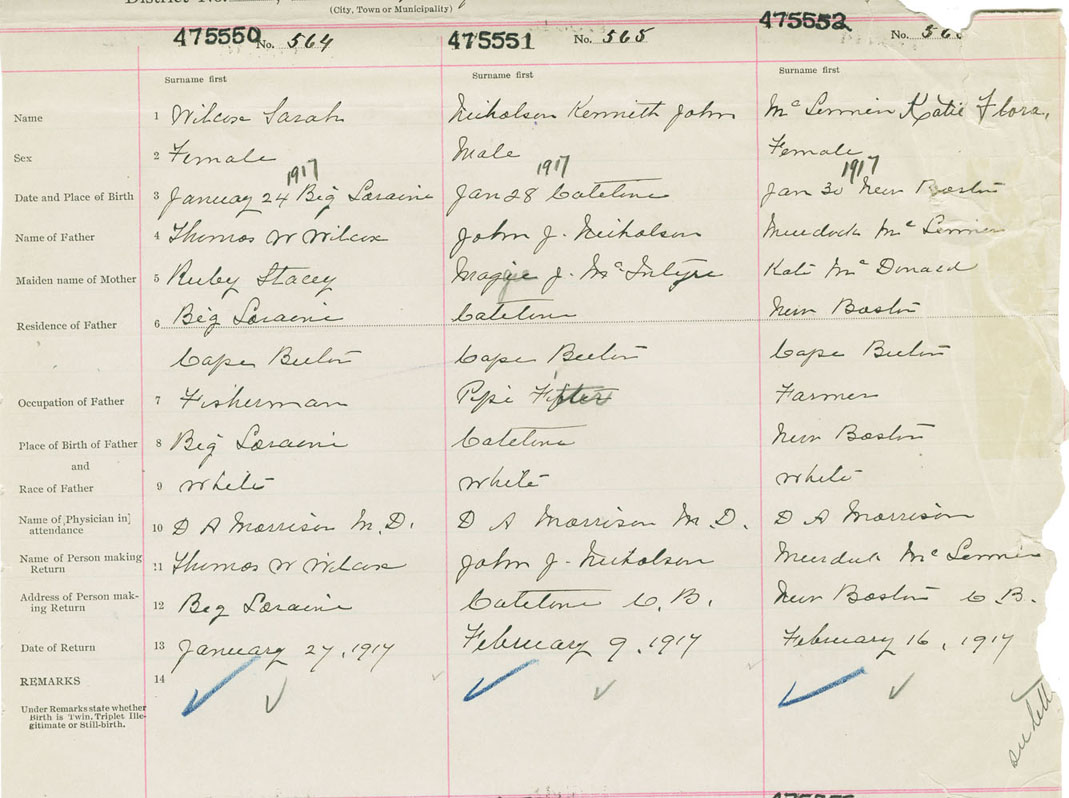 District No.
(City, Town or Municipality)
475550 No. 564 475551 No. 565 475552 No. 56
Surname first Surname first Surname first
Name 1 Wilcox Sarah Nicholson Kenneth John Mc Lennen Katie Flora,
Sex 2 Female Male Female
1917 1917 1917
Date and Place of Birth 3 January 24 Big Loraine Jan 28 Catelone Jan 30 New Boston
Name of Father 4 Thomas W Wilcox John J. Nicholson Murdock Mc Lennen
Maiden name of Mother 5 Ruby Stacey Maggie J. Mc Intyre Kate Mc Donald
Residence of Father 6 Big Loraine Catelone New Boston
Cape Breton Cape Breton Cape Breton
Occupation of Father 7 Fisherman Pipe Fitter Farmer
Place of Birth of Father 8 Big Loraine Catelone New Boston
and
Race of Father 9 White White White
Name of [Physician in] attendance 10 D A Morrison M.D. D A Morrison M.D. D A Morrison
Name of Person making Return 11 Thomas W Wilcox John J. Nicholson Murdock Mc Lennen
Address of Person making Return 12 Big Loraine Catelone C.B. New Boston C.B.
Date of Return 13 January 27, 1917 February 9, 1917 February 16, 1917
REMARKS 14
Under Remarks state whether
Birth is Twin, Triplet Ille-
gitimate or Still-birth.